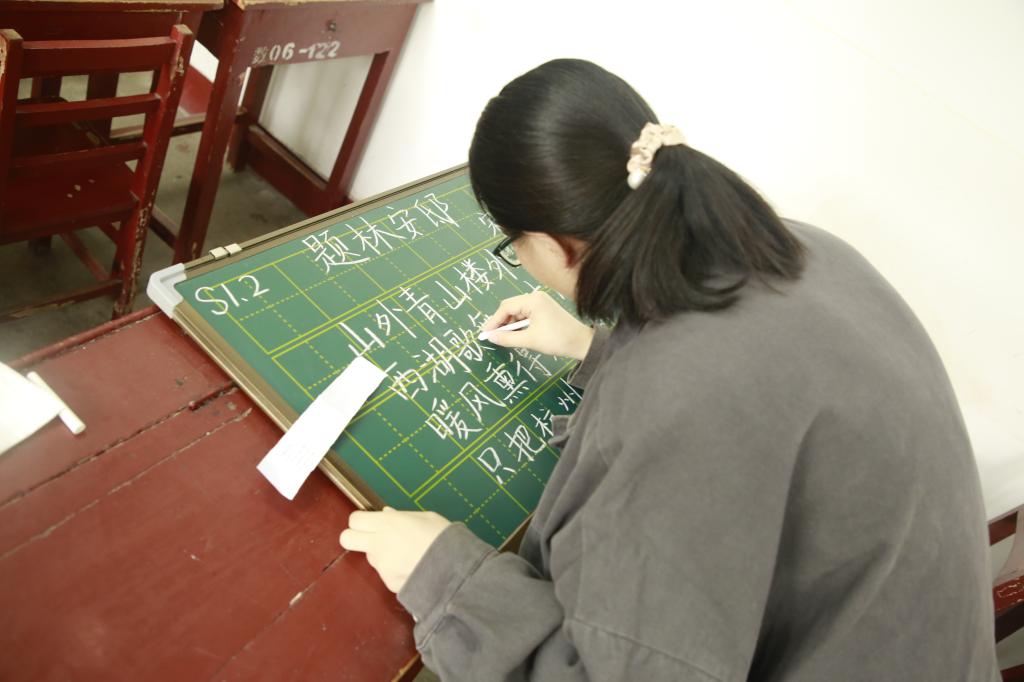 数06-122
S1.2
题林安邸
山外青山楼外
西湖歌
暖风熏得
只把杭州